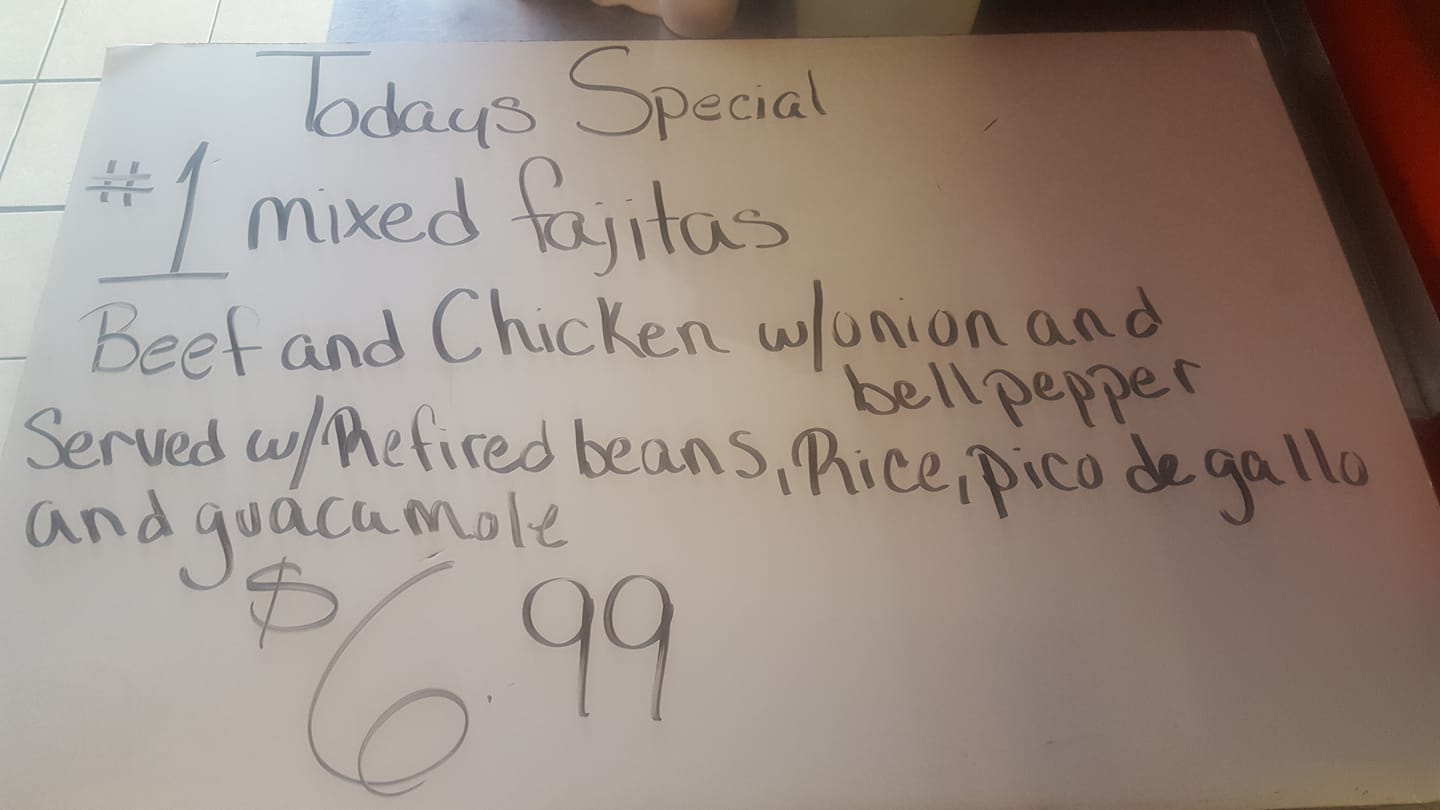 Todays Special
#1 mixed fajitas
Beef and Chicken w/onion and
bell pepper
Served w/Refired beans, Rice, pico de gallo
and guacamole
$6.99